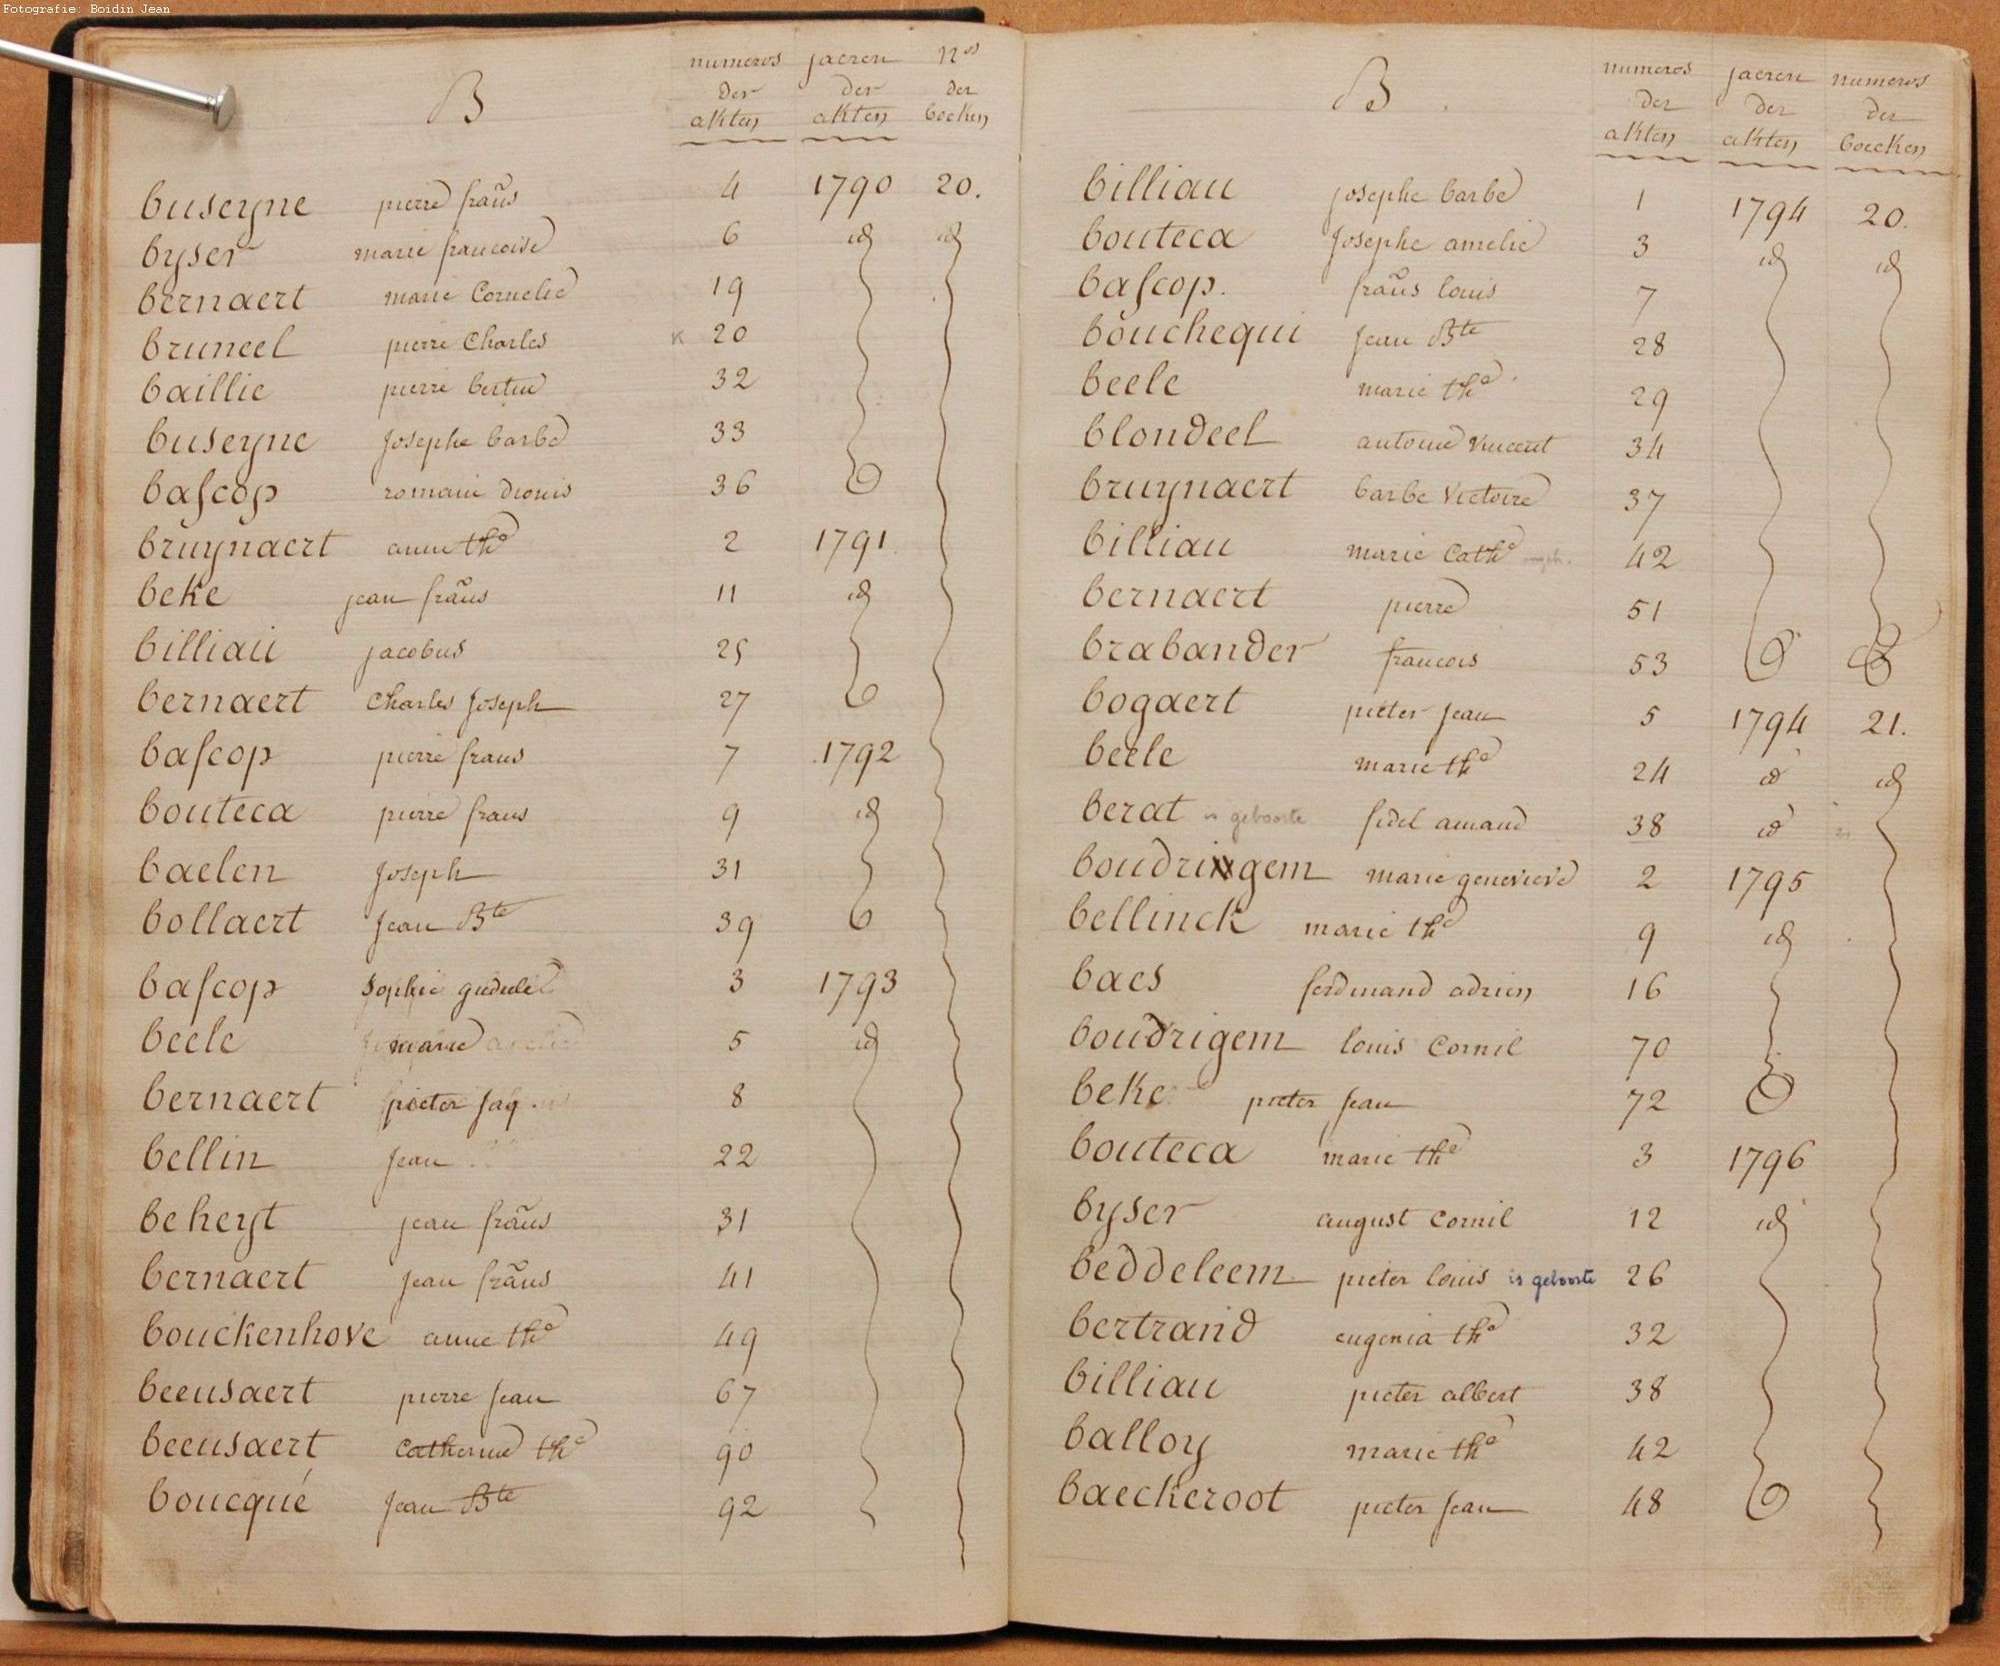 Fotografie: Boidin Jean
B numeros der akten jaeren der akten Nos der boeken
buseyne pierre frañs 4 1790 20.
byser marie francoise 6 id id
bernaert marie Cornelie 19
bruneel pierre Charles K 20
baillie pierre bertin 32
buseyne Josephe barbe 33
bascop romain dionis 36
bruynaert anne the 2 1791
beke jean frañs 11 id
billiau jacobus 25
bernaert Charles Joseph 27
bascop pierre frans 7 1792
bouteca pierre frans 9 id
baelen Joseph 31
bollaert Jean Bte 39
bascop Sophie gudule 3 1793
beele marie 5 id
bernaert pieter Jaq 8
bellin Jean 22
beheyt jean frañs 31
bernaert Jean frañs 41
bouckenhove anne the 49
beeusaert pierre Jean 67
beeusaert Catherine the 90
boucqué Jean Bte 92
B numeros der akten jaeren der akten numeros der boecken
billiau josephe barbe 1 1794 20.
bouteca Josephe amelie 3 id id
bascop. frañs louis 7
bouchequi Jean Bte 28
beele marie the 29
blondeel antoine vincent 34
bruynaert barbe Victoire 37
billiau marie Cathe 42
bernaert pierre 51
brabander francois 53
bogaert pieter Jean 5 1794 21.
beele marie the 24 id id
berat is geboorte fidel amand 38 id
boudringem marie genevieve 2 1795
bellinck marie the 9 id
baes ferdinand adrien 16
boudrigem louis Cornil 70
beke pieter Jean 72
bouteca marie the 3 1796
byser august Cornil 12 id
beddeleem pieter louis is geboorte 26
bertrand eugenia the 32
billiau pieter albert 38
balloy marie the 42
baeckeroot pieter Jean 48